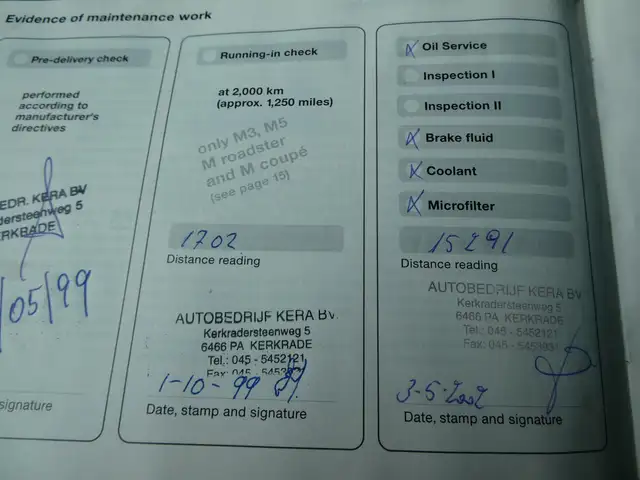 Evidence of maintenance work
Pre-delivery check
performed
according to
manufacturer's
directives
EDR. KERA BV
dersteenweg 5
ERKRADE
/05/99
signature
Running-in check
at 2,000 km
(approx. 1,250 miles)
only M3, M5
M roadster
and M coupé
(see page 15)
1702
Distance reading
AUTOBEDRIJF KERA BV.
Kerkradersteenweg 5
6466 PA KERKRADE
Tel.: 045 - 5452121
Fax: 045 -
1-10-99
Date, stamp and signature
Oil Service
Inspection I
Inspection II
Brake fluid
Coolant
Microfilter
15291
Distance reading
AUTOBEDRIJF KERA BV
Kerkradersteenweg 5
6466 PA KERKRADE
Tel.: 045 - 5452121
Fax: 045 -
3-5-2002
Date, stamp and signature